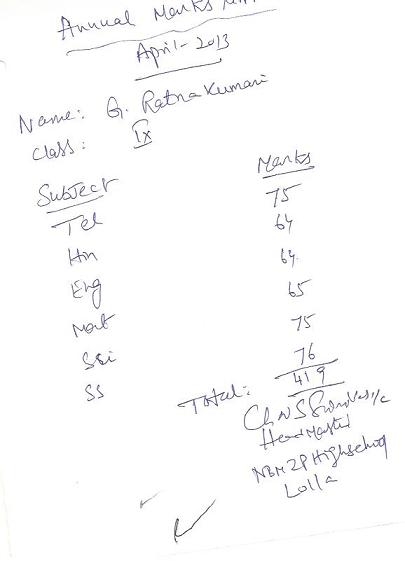 Annual Marks
April-2013
Name: G. Ratna Kumari
Class: IX
Subject Marks
Tel 75
Hn 64
Eng 64
Mat 65
Sci 75
SS 76
Total: 419
Ch N S
Head Master
NBM ZP High School
Lolla